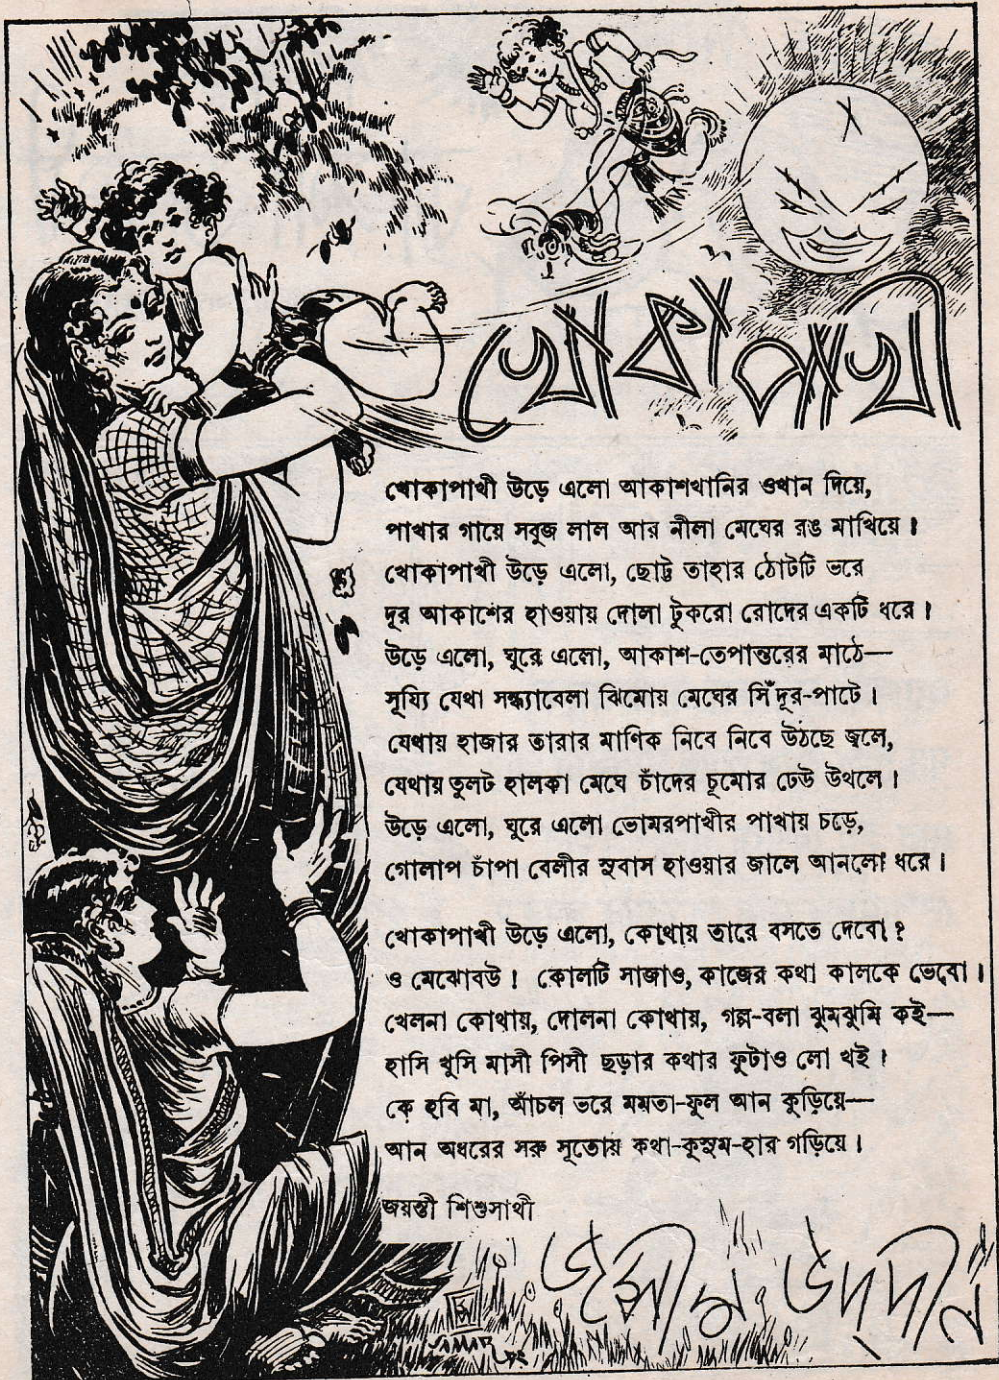 খোকা পাখী
খোকাপাখী উড়ে এলো আকাশখানির ওখান দিয়ে,
পাখার গায়ে সবুজ লাল আর নীলা মেঘের রঙ মাখিয়ে।
খোকাপাখী উড়ে এলো, ছোট্ট তাহার ঠোটটি ভরে
দূর আকাশের হাওয়ায় দোলা টুকরো রোদের একটি ধরে।
উড়ে এলো, ঘুরে এলো, আকাশ-তেপান্তরের মাঠে—
সূয্যি যেথা সন্ধ্যাবেলা ঝিমোয় মেঘের সিঁদূর-পাটে।
যেথায় হাজার তারার মাণিক নিবে নিবে উঠছে জ্বলে,
যেথায় তুলট হালকা মেঘে চাঁদের চূমোর ঢেউ উথলে।
উড়ে এলো, ঘুরে এলো ভোমরপাখীর পাখায় চড়ে,
গোলাপ চাঁপা বেলীর সুবাস হাওয়ার জালে আনলো ধরে।
খোকাপাখী উড়ে এলো, কোথায় তারে বসতে দেবো?
ও মেঝোবউ! কোলটি সাজাও, কাজের কথা কালকে ভেবো।
খেলনা কোথায়, দোলনা কোথায়, গল্প-বলা ঝুমঝুমি কই—
হাসি খুসি মাসী পিসী ছড়ার কথার ফুটাও লো খই।
কে হবি মা, আঁচল ভরে মমতা-ফুল আন কুড়িয়ে—
আন অধরের সরু সূতোয় কথা-কুসুম-হার গড়িয়ে।
জয়ন্তী শিশুসাথী
জসীম উদ্‌দীন